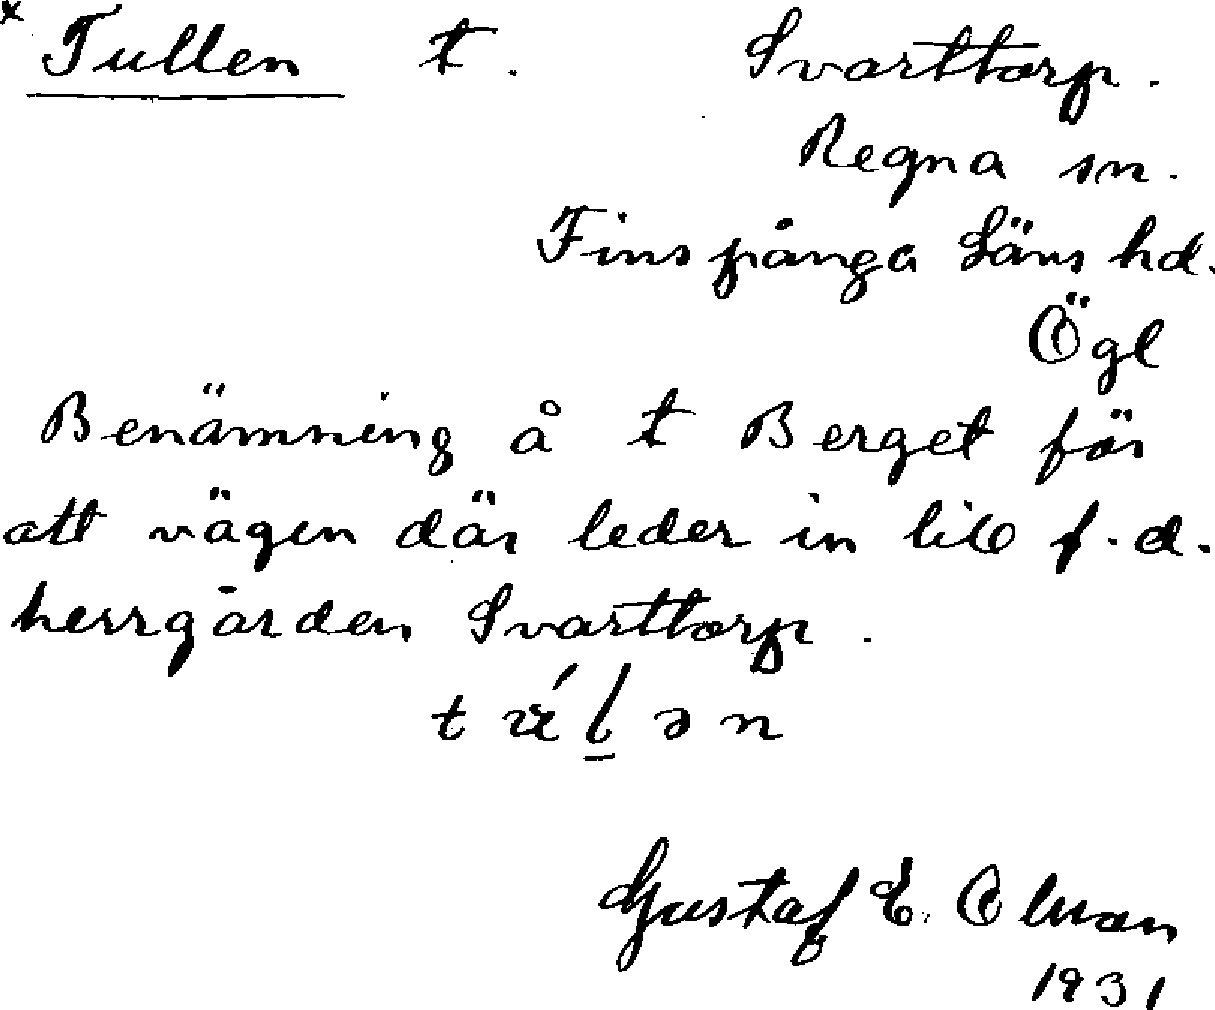 * Tullen t. Svarttorp.
Regna sn.
Finspånga Läns hd.
Ögl
Benämning å t Berget för
att vägen där leder in till f.d.
herrgården Svarttorp.
Gustaf E.
1931